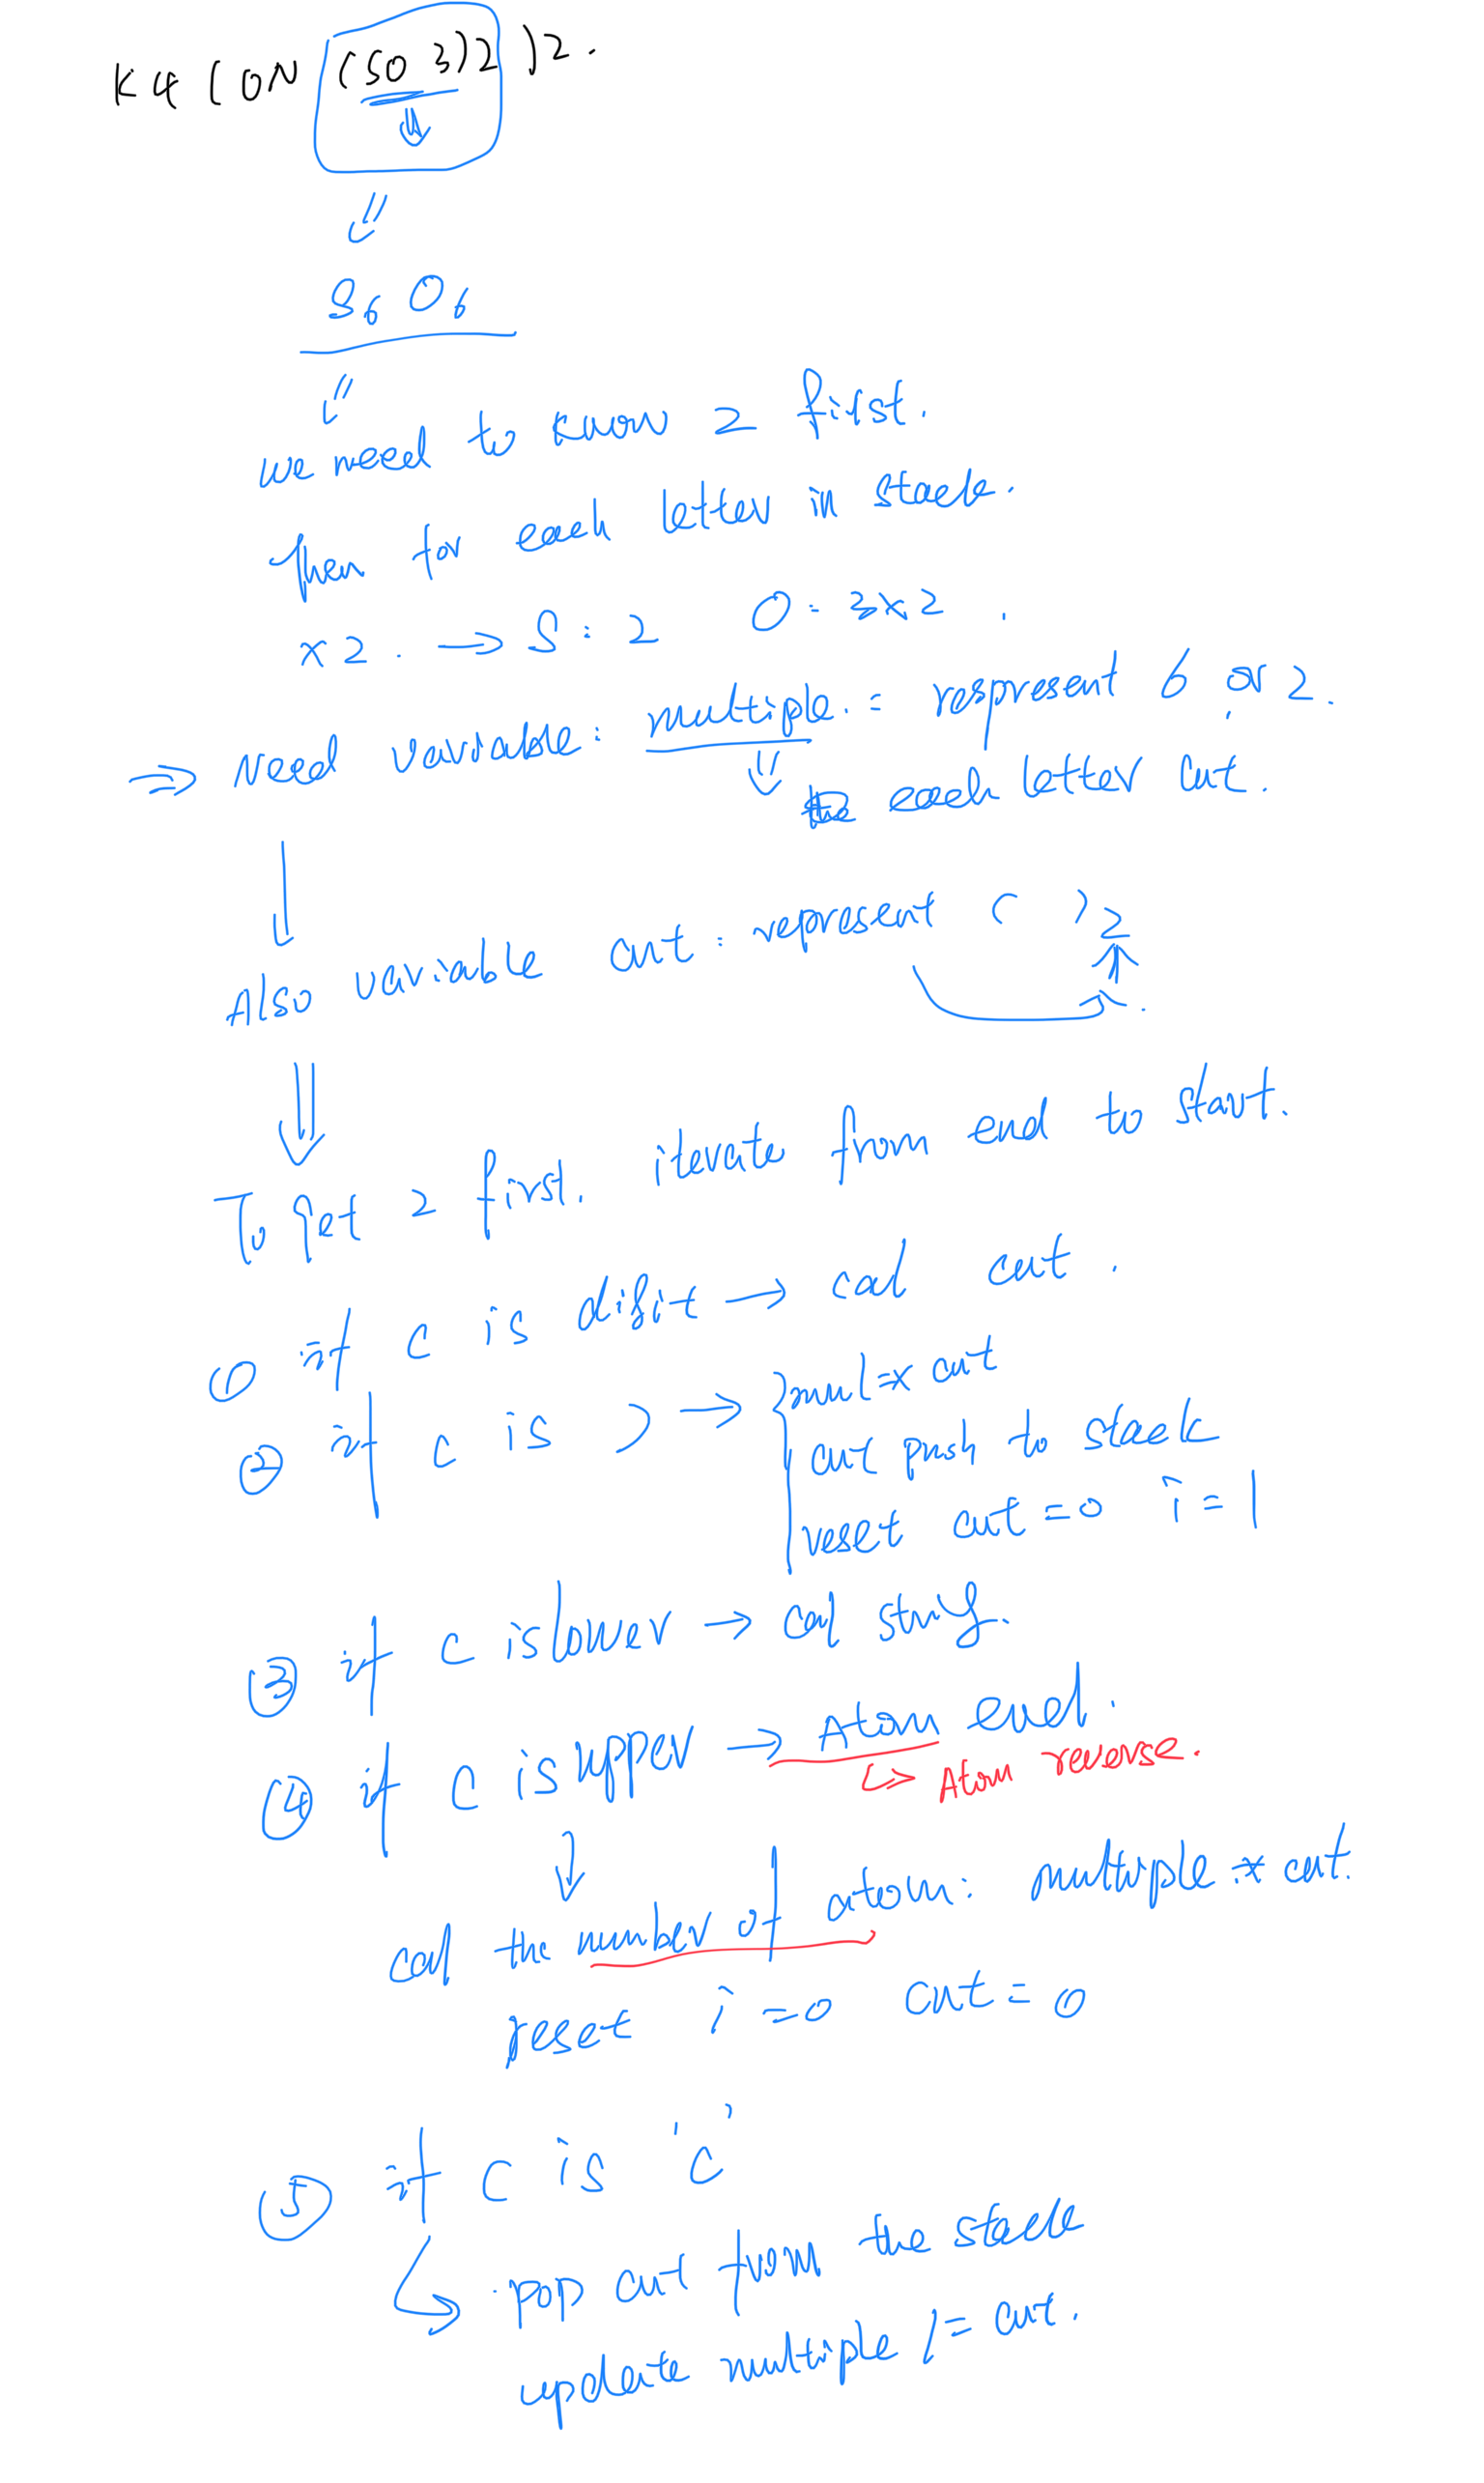 K4 (ON (SO 3)2 )2.
S6 O6
we need to know 2 first.
Then for each letter in stack.
x2. → S: 2 O = 2x2.
⇒ Need variable: multiple. = represent 6 or 2.
the each letter cnt.
Also variable cnt: represent ( )2
To get 2 first. iterate from end to start.
① if c is digit → cal cnt.
② if c is ) → { mul =x cnt
cnt push to stack
reset cnt = 0 i = 1
③ if c is lower → cal string.
④ if c is upper → Atom end.
↳ Atom reverse.
cal the number of atom: multiple * cnt.
reset i = 0 cnt = 0
⑤ if c is '('
↳ pop cnt from the stack
update multiple /= cnt.